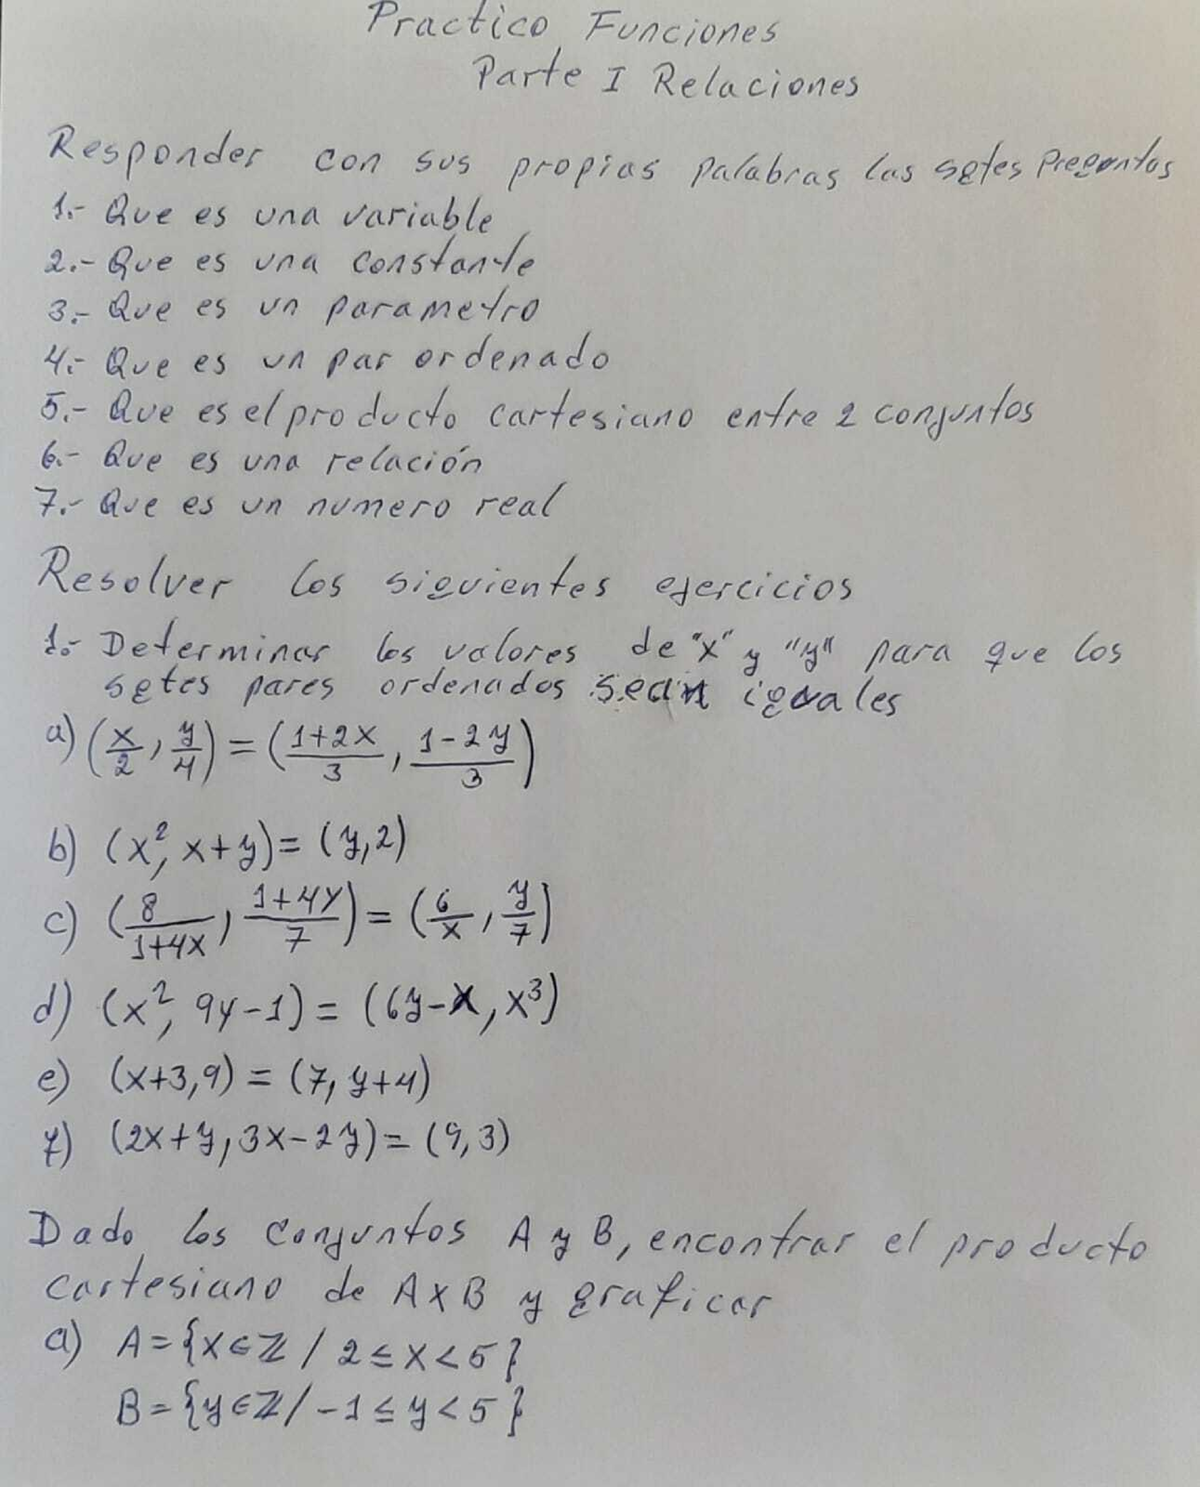 Practico Funciones
Parte I Relaciones
Responder con sus propias palabras las sgtes Preguntas
1.- Que es una variable
2.- Que es una constante
3.- Que es un parametro
4.- Que es un par ordenado
5.- Que es el producto cartesiano entre 2 conjuntos
6.- Que es una relación
7.- Que es un numero real
Resolver los siguientes ejercicios
1.- Determinar los valores de "x" y "y" para que los
sgtes pares ordenados sean iguales
a) (x/2, y/4) = (1+2x/3, 1-2y/3)
b) (x², x+y) = (y,2)
c) (8/1+4x, 1+4y/7) = (6/x, y/7)
d) (x², 9y-1) = (6y-x, x³)
e) (x+3,9) = (7, y+4)
f) (2x+y, 3x-2y) = (9,3)
Dado los conjuntos A y B, encontrar el producto
cartesiano de A x B y graficar
a) A = {x∈ℤ / 2 ≤ x < 5}
B = {y∈ℤ / -1 ≤ y < 5}